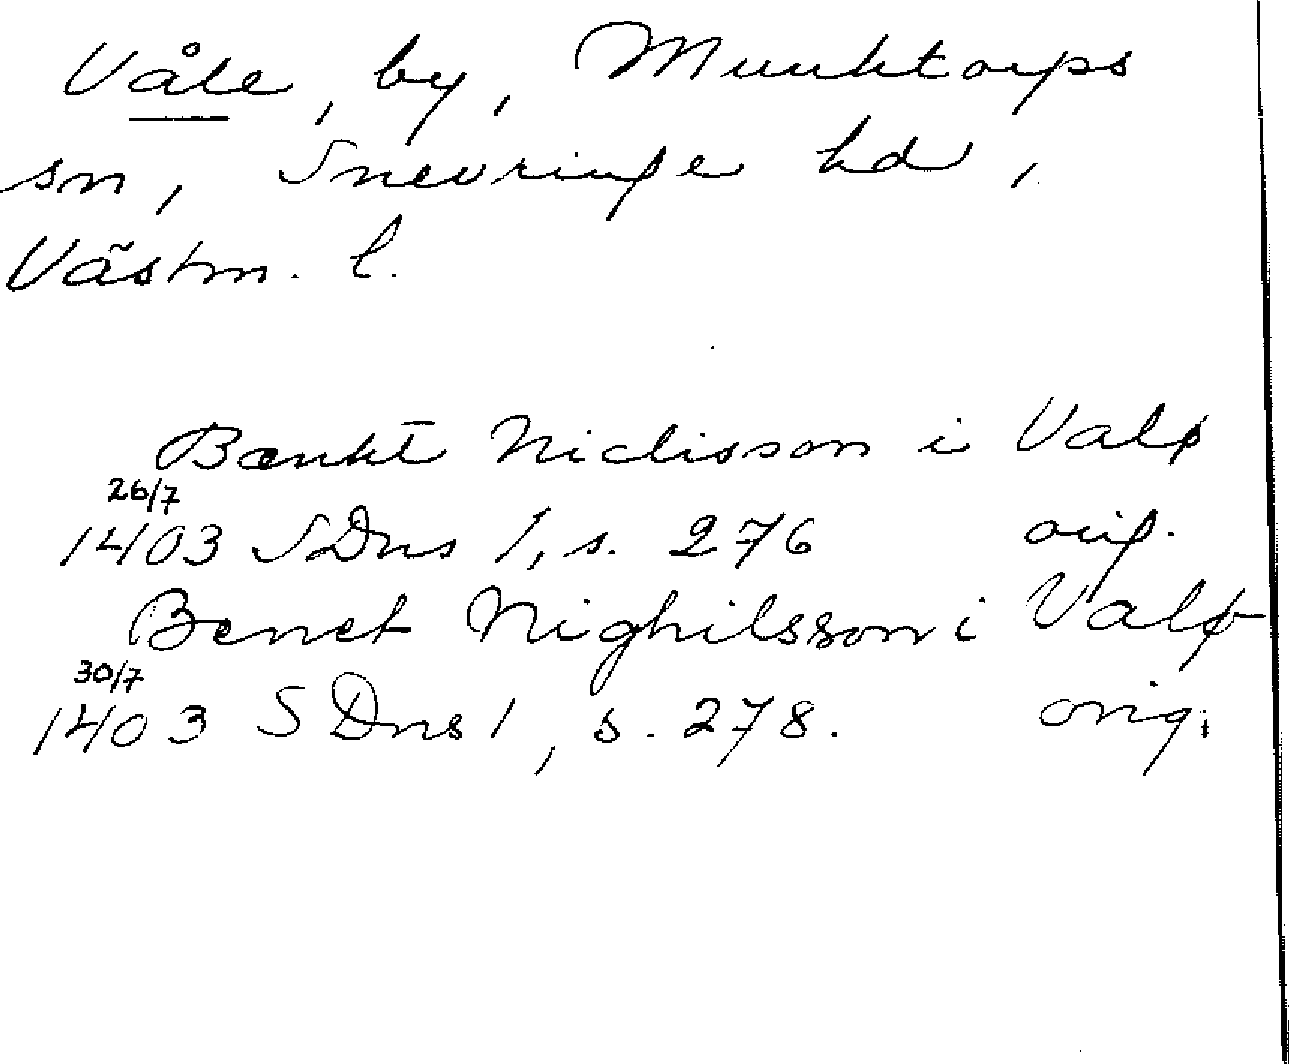 Våle, by, Munktorps
sn, Snevringe hd,
Västm. l.
Bænkt Niclisson i Valø
26/7
1403 SDns 1, s. 276 orig.
Benet Nighilsson i Valø
30/7
1403 SDns 1, s. 278. orig.